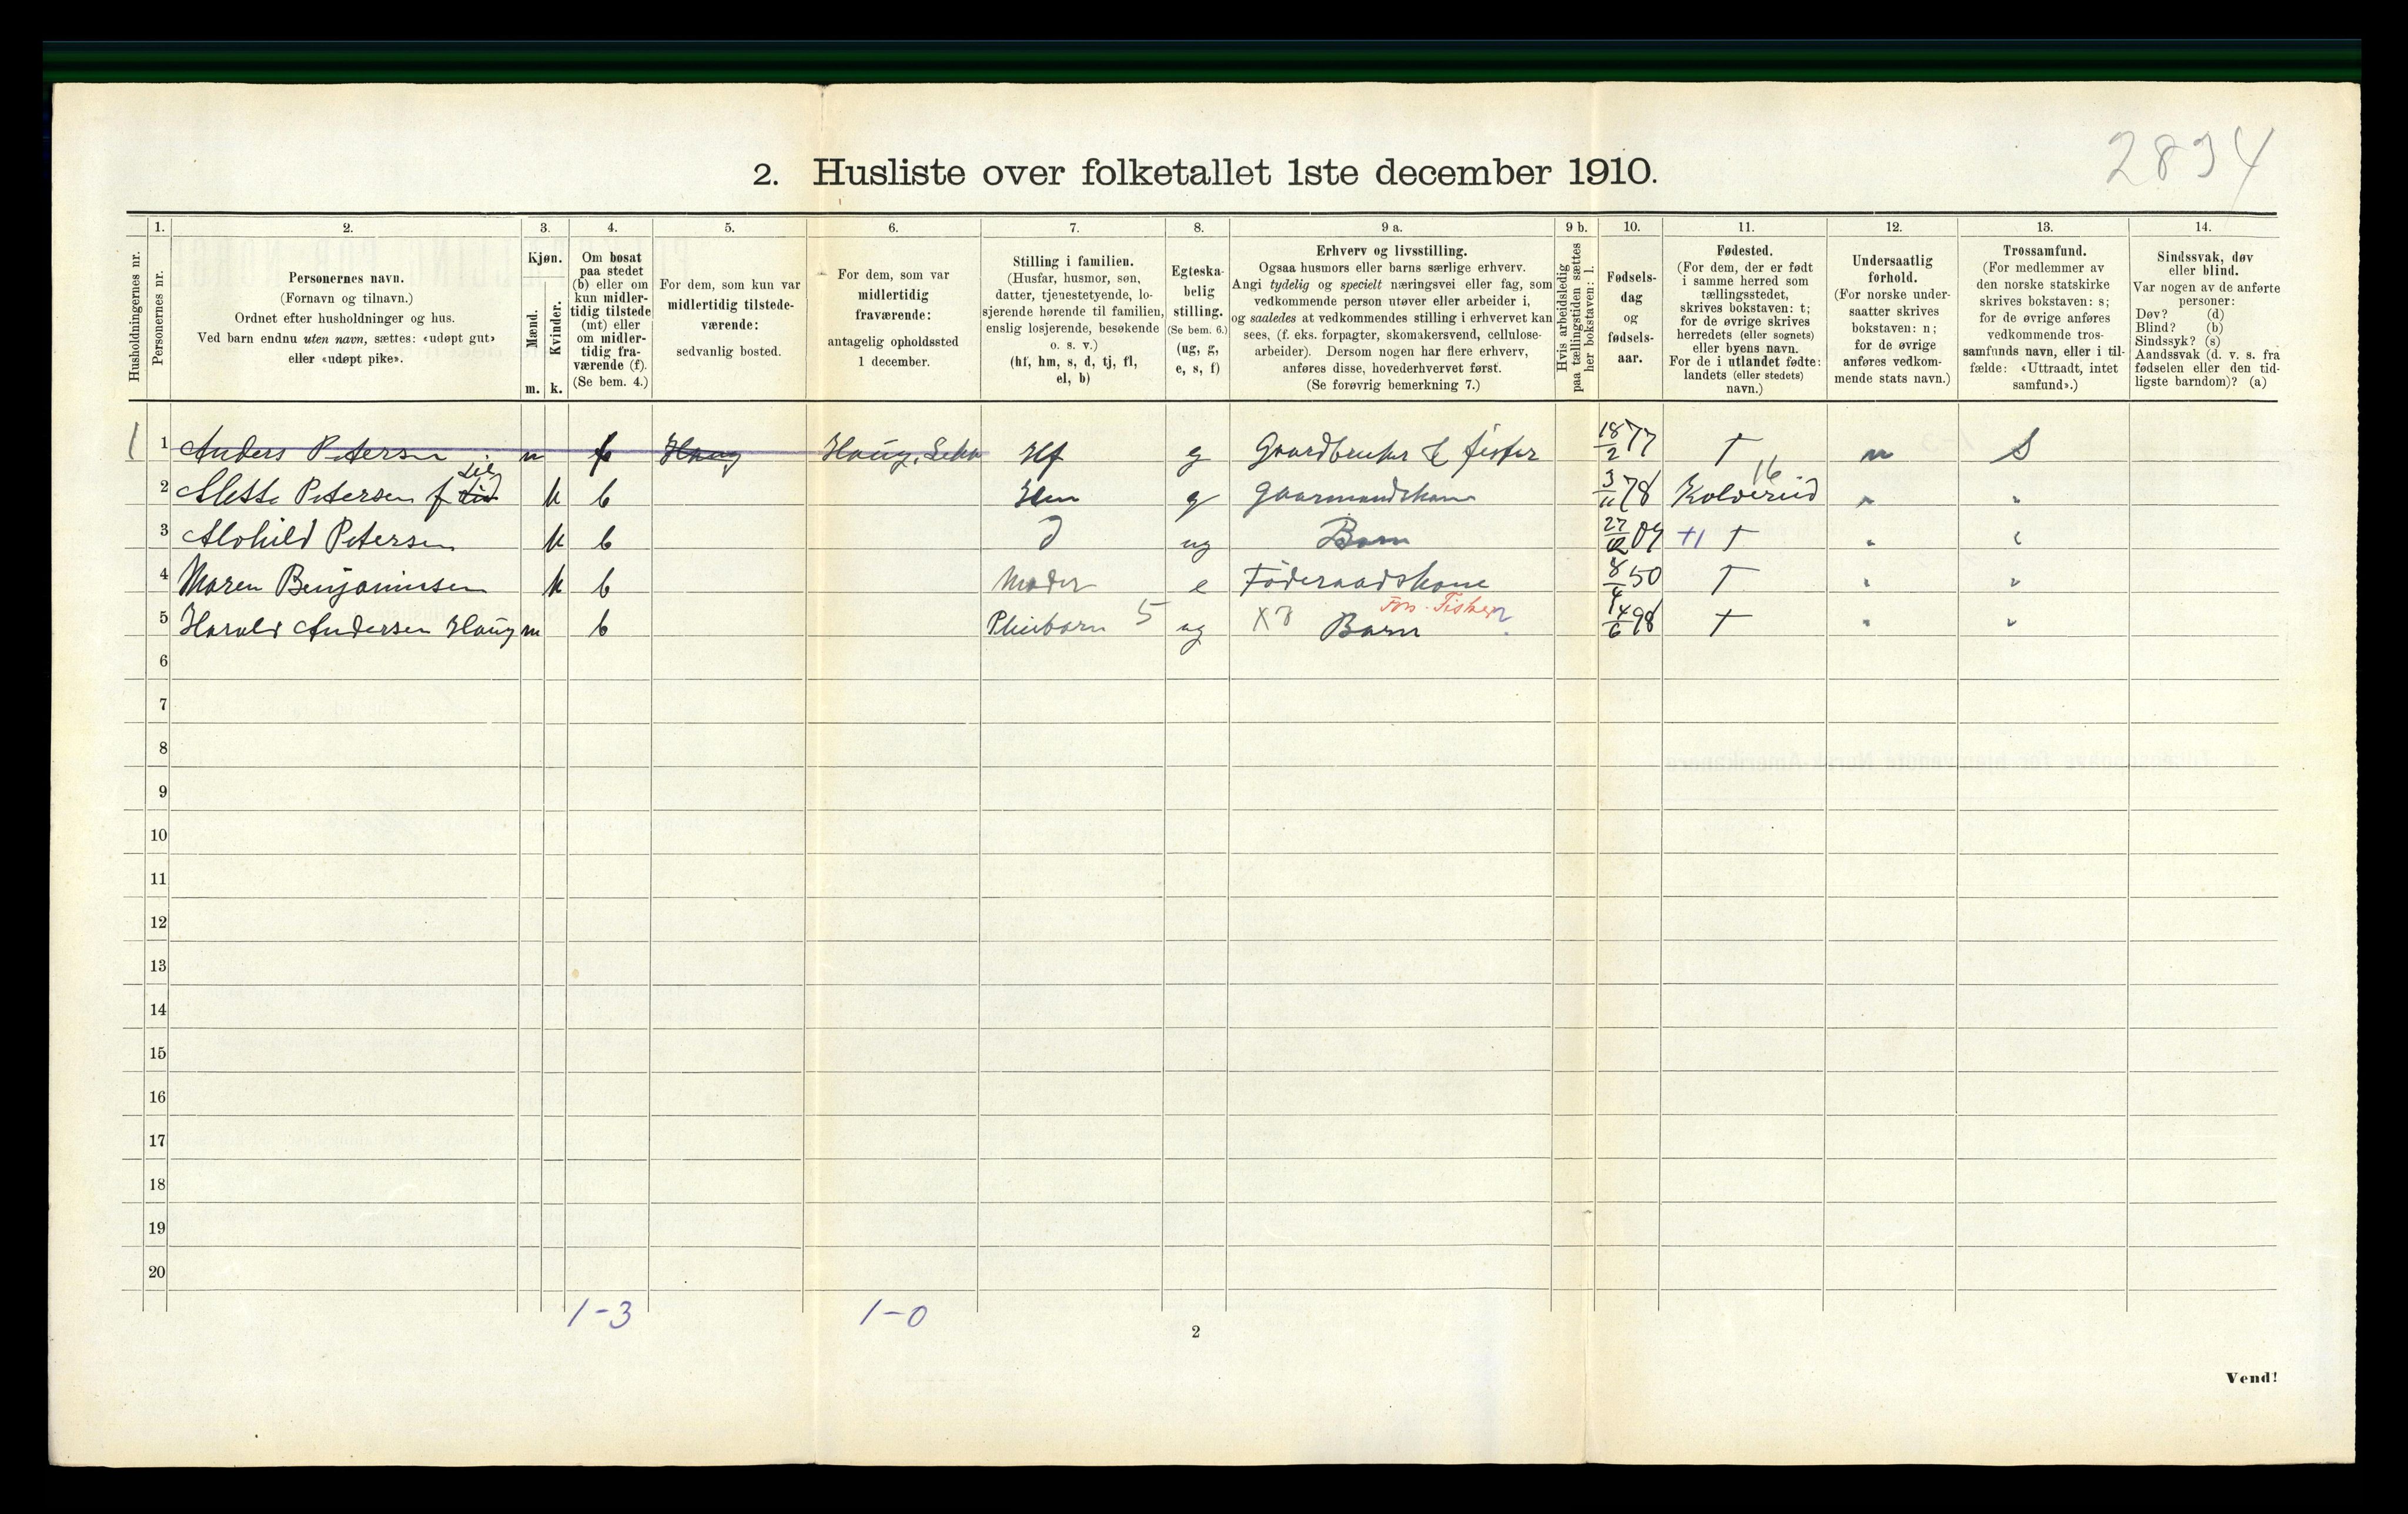 2894
2. Husliste over folketallet 1ste december 1910.
1. 2. 3. 4. 5. 6. 7. 8. 9 a. 9 b. 10. 11. 12. 13. 14.
Husholdningernes nr.
Personernes nr.
Personernes navn.
(Fornavn og tilnavn.)
Ordnet efter husholdninger og hus.
Ved barn endnu uten navn, sættes: «udøpt gut»
eller «udøpt pike».
Kjøn.
Mænd.
Kvinder.
m. k.
Om bosat
paa stedet
(b) eller om
kun midler-
tidig tilstede
(mt) eller
om midler-
tidig fra-
værende (f).
(Se bem. 4.)
For dem, som kun var
midlertidig tilstede-
værende:
sedvanlig bosted.
For dem, som var
midlertidig
fraværende:
antagelig opholdssted
1 december.
Stilling i familien.
(Husfar, husmor, søn,
datter, tjenestetyende, lo-
sjerende hørende til familien,
enslig losjerende, besøkende
o. s. v.)
(hf, hm, s, d, tj, fl,
el, b)
Egteska-
belig
stilling.
(Se bem. 6.)
(ug, g,
e, s, f)
Erhverv og livsstilling.
Ogsaa husmors eller barns særlige erhverv.
Angi tydelig og specielt næringsvei eller fag, som
vedkommende person utøver eller arbeider i,
og saaledes at vedkommendes stilling i erhvervet kan
sees, (f. eks. forpagter, skomakersvend, cellulose-
arbeider). Dersom nogen har flere erhverv,
anføres disse, hovederhvervet først.
(Se forøvrig bemerkning 7.)
Hvis arbeidsledig
paa tællingstiden sættes
her bokstaven: l.
Fødsels-
dag
og
fødsels-
aar.
Fødested.
(For dem, der er født
i samme herred som
tællingsstedet,
skrives bokstaven: t;
for de øvrige skrives
herredets (eller sognets)
eller byens navn.
For de i utlandet fødte:
landets (eller stedets)
navn.)
Undersaatlig
forhold.
(For norske under-
saatter skrives
bokstaven: n;
for de øvrige
anføres vedkom-
mende stats navn.)
Trossamfund.
(For medlemmer av
den norske statskirke
skrives bokstaven: s;
for de øvrige anføres
vedkommende tros-
samfunds navn, eller i til-
fælde: «Uttraadt, intet
samfund».)
Sindssvak, døv
eller blind.
Var nogen av de anførte
personer:
Døv? (d)
Blind? (b)
Sindssyk? (s)
Aandssvak (d. v. s. fra
fødselen eller den tid-
ligste barndom)? (a)
1 1 Anders Petersen m f Haug Haug, Hf g Gaardbruker & fisker 18/2 77 T n S
2 Mette Petersen f k b Hm g gaarmandskone 3/11 78 Kolvereid 16 " "
3 Alvhild Petersen k b d ug Barn 27/12 09 +1 T " "
4 Maren Benjaminsen k b Moder e Føderaadskone 8/4 50 T " "
5 Harald Andersen Haug m b Pleiebarn 5 ug X7 Barn Fors. Fisker 14/6 98 T " "
6
7
8
9
10
11
12
13
14
15
16
17
18
19
20
1-3 1-0
2
Vend!